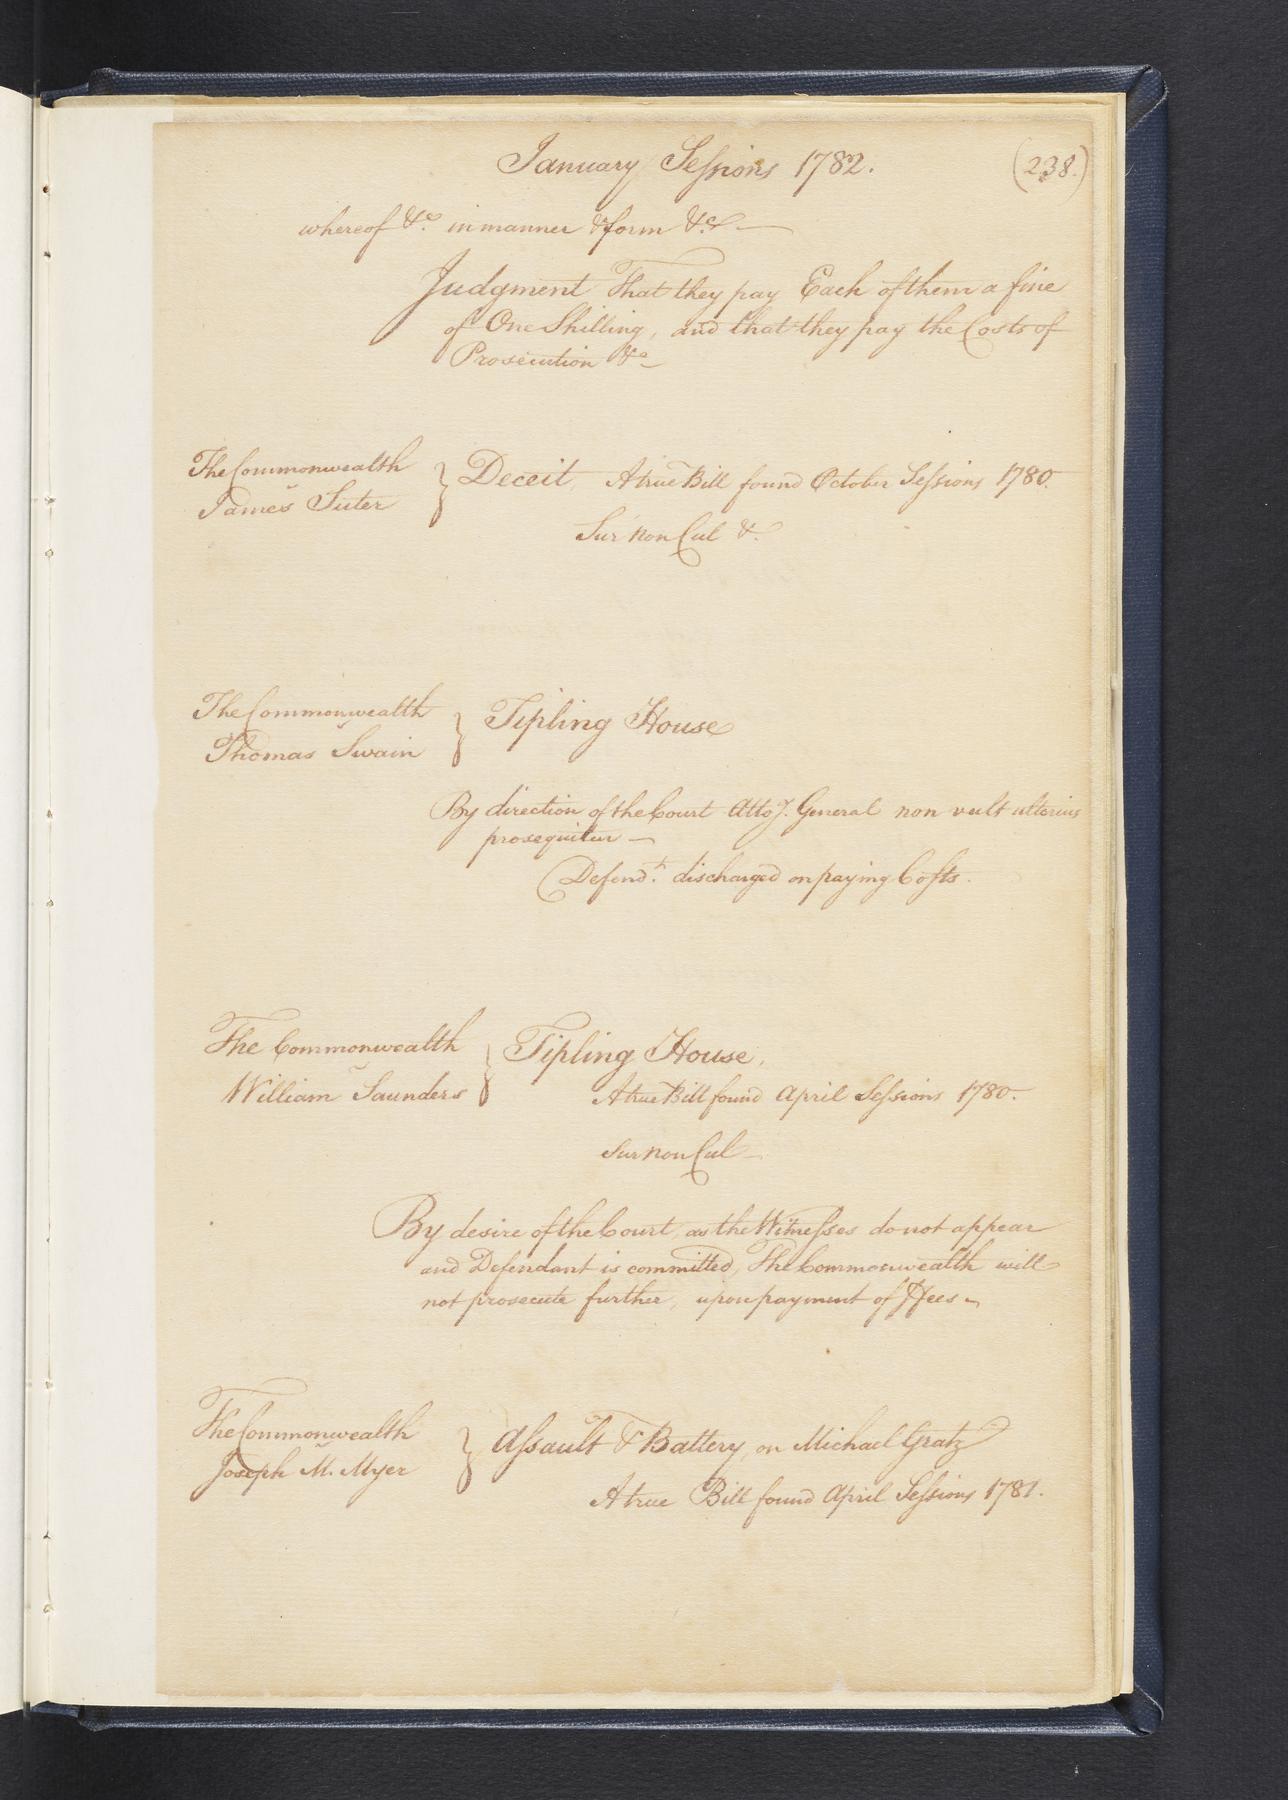 January Sessions 1782. (238.)
whereof &c. in manner & form &c. —
Judgment That they pay Each of them a fine
of One Shilling, and that they pay the Costs of
Prosecution &c—
The Commonwealth
v
James Suter } Deceit, A true Bill found October Sessions 1780.
Sur non Cul &.
The Commonwealth
v
Thomas Swain } Tipling House
By direction of the Court Atty. General non vult ulterius
prosequitur —
Defendt. discharged on paying Costs.
The Commonwealth
v
William Saunders } Tipling House.
A true Bill found April Sessions 1780.
Sur non Cul —
By desire of the Court, as the Witnesses do not appear
and Defendant is committed, The Commonwealth will
not prosecute further, upon payment of Fees —
The Commonwealth
v
Joseph M. Myer } Assault & Battery, on Michael Gratz
A true Bill found April Sessions 1781.